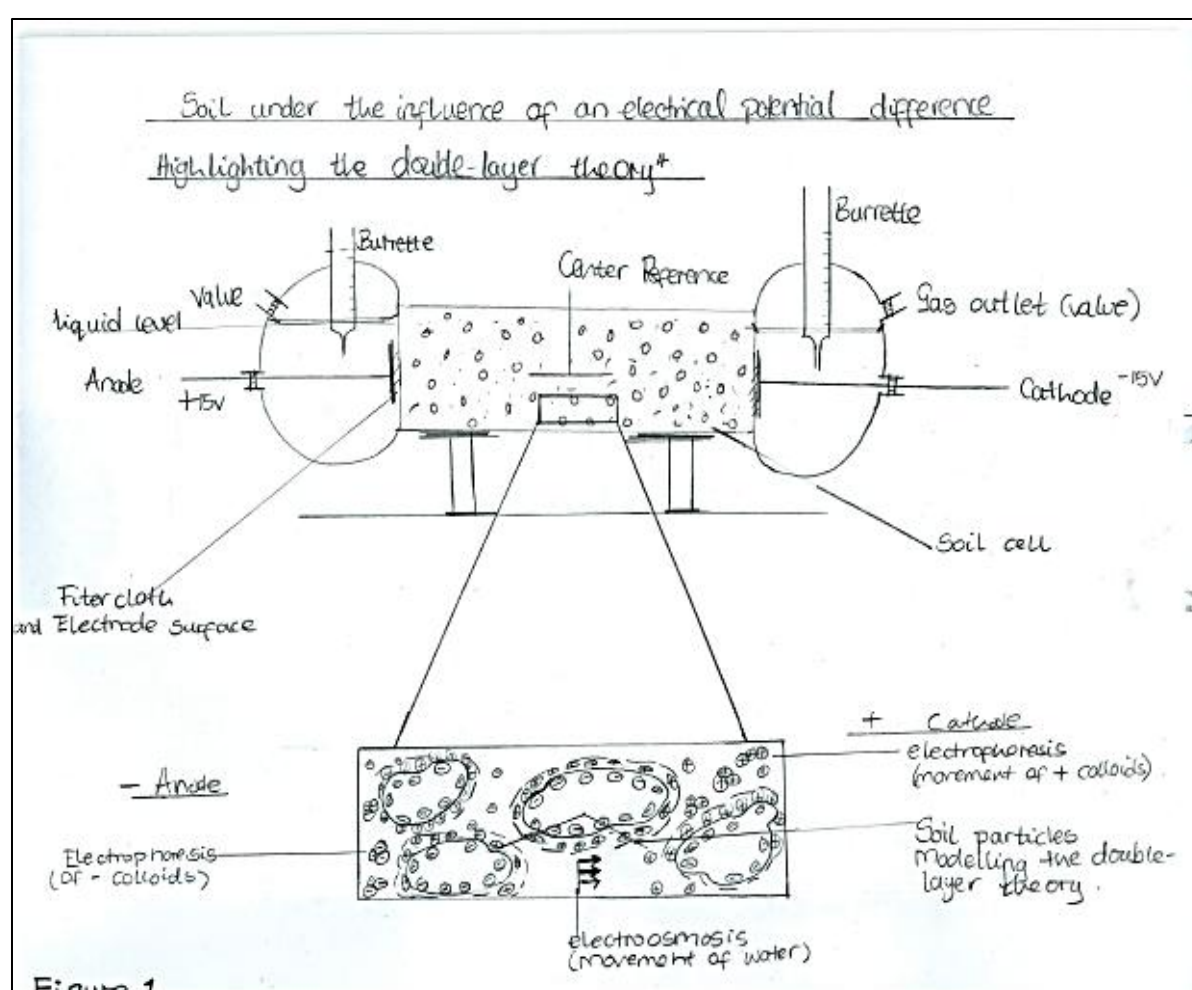 Soil under the influence of an electrical potential difference
Highlighting the double-layer theory*
Burrette
Burrette
Center Reference
Value
Gas outlet (value)
liquid level
Anode
+15V
Cathode -15V
Soil cell
Fiter cloth
and Electrode surface
+ Cathode
electrophoresis
(movement of + colloids).
- Anode
Electrophoresis
(of - colloids)
Soil particles
Modelling the double-
layer theory.
electroosmosis
(movement of water)
Figure 1